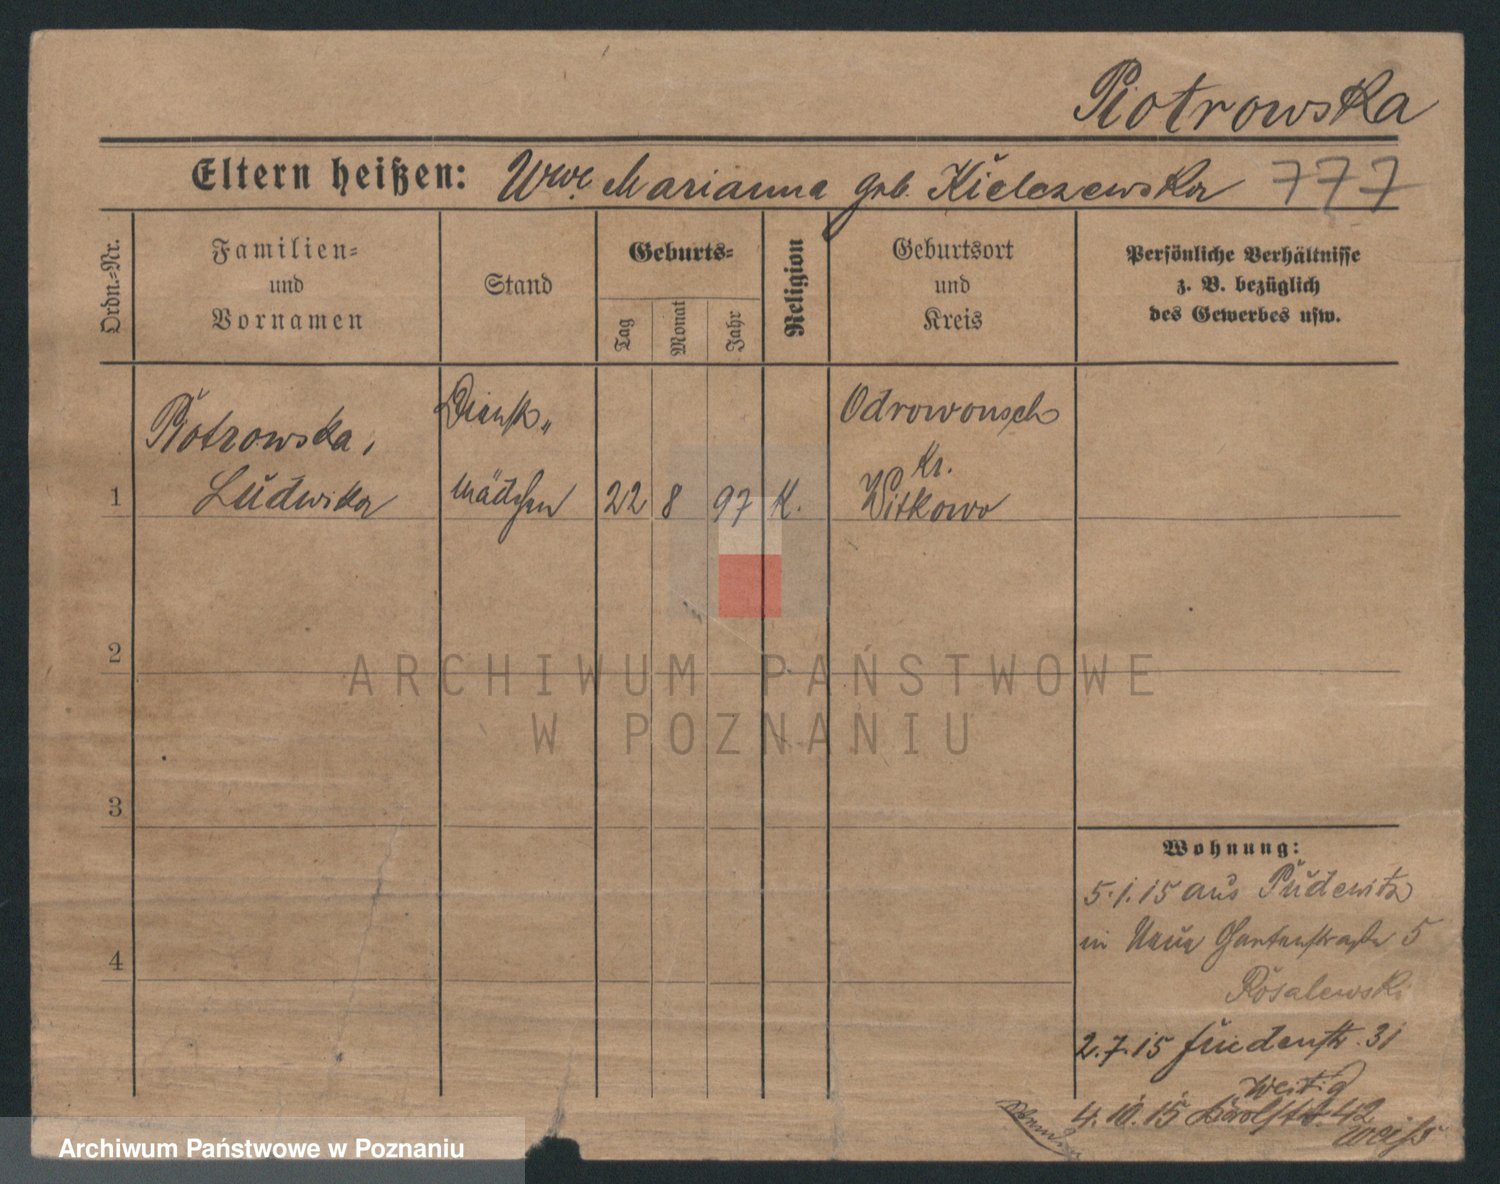 Piotrowska
Eltern heißen: Wwe. Marianna geb. Kielczewska 777
Ordn.=Nr.
Familien=
und
Vornamen
Stand
Geburts=
Tag
Monat
Jahr
Religion
Geburtsort
und
Kreis
Persönliche Verhältnisse
z. B. bezüglich
des Gewerbes usw.
Piotrowska,
Ludwika
Dienst„
mädchen
22 8 97 K.
Odrowonsch
Kr.
Witkowo
1
2
3
4
Wohnung:
5.1.15 aus Pudewitz
in Neue Gartenstraße 5
Rosalewski
2.7.15 31
4.10.15 42
Weiss
ARCHIWUM PAŃSTWOWE
W POZNANIU
Archiwum Państwowe w Poznaniu